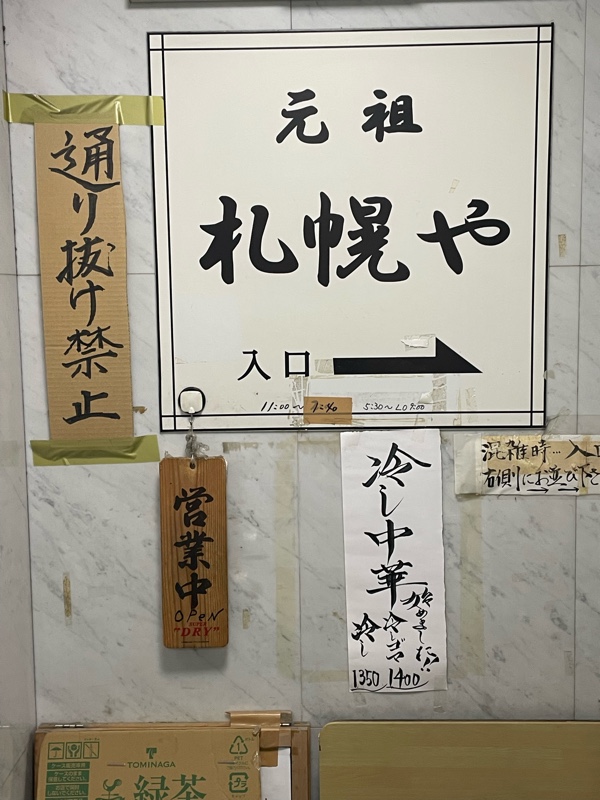 元祖
札幌や
入口
11:00～
5:30～LO9:00
通り抜け禁止
営業中
OPEN
"DRY"
冷し中華
始めました!!
冷し
1350 1400
混雑時…入口
右側にお並び下さ
TOMINAGA
緑茶